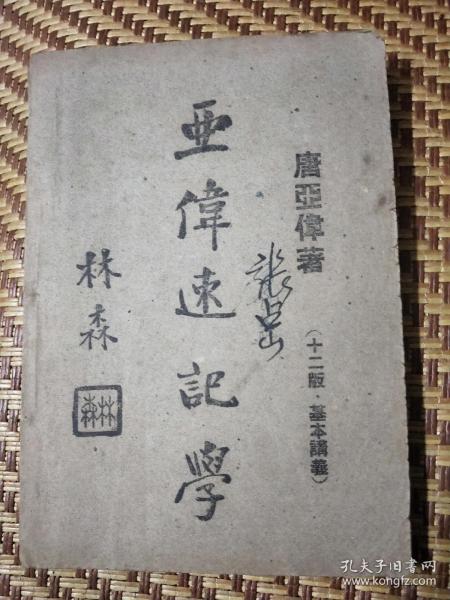 唐亞偉著
(十二版·基本講義)
亞偉速記學
林森
孔夫子旧书网
www.kongfz.com